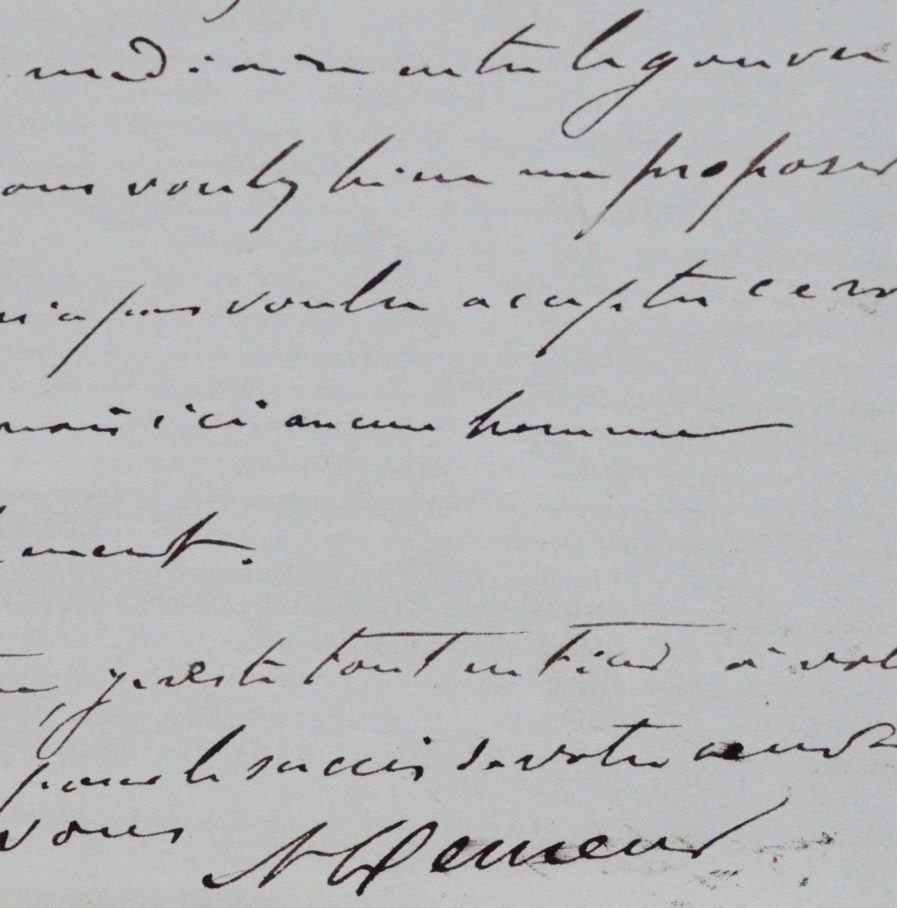 médiaire entre le gouver
ous voulez bien me proposer
n'a pas voulu accepter ce
nais ici aucun homme
ment.
je reste tout entier à vot
pour le succès de votre œuvre
vous